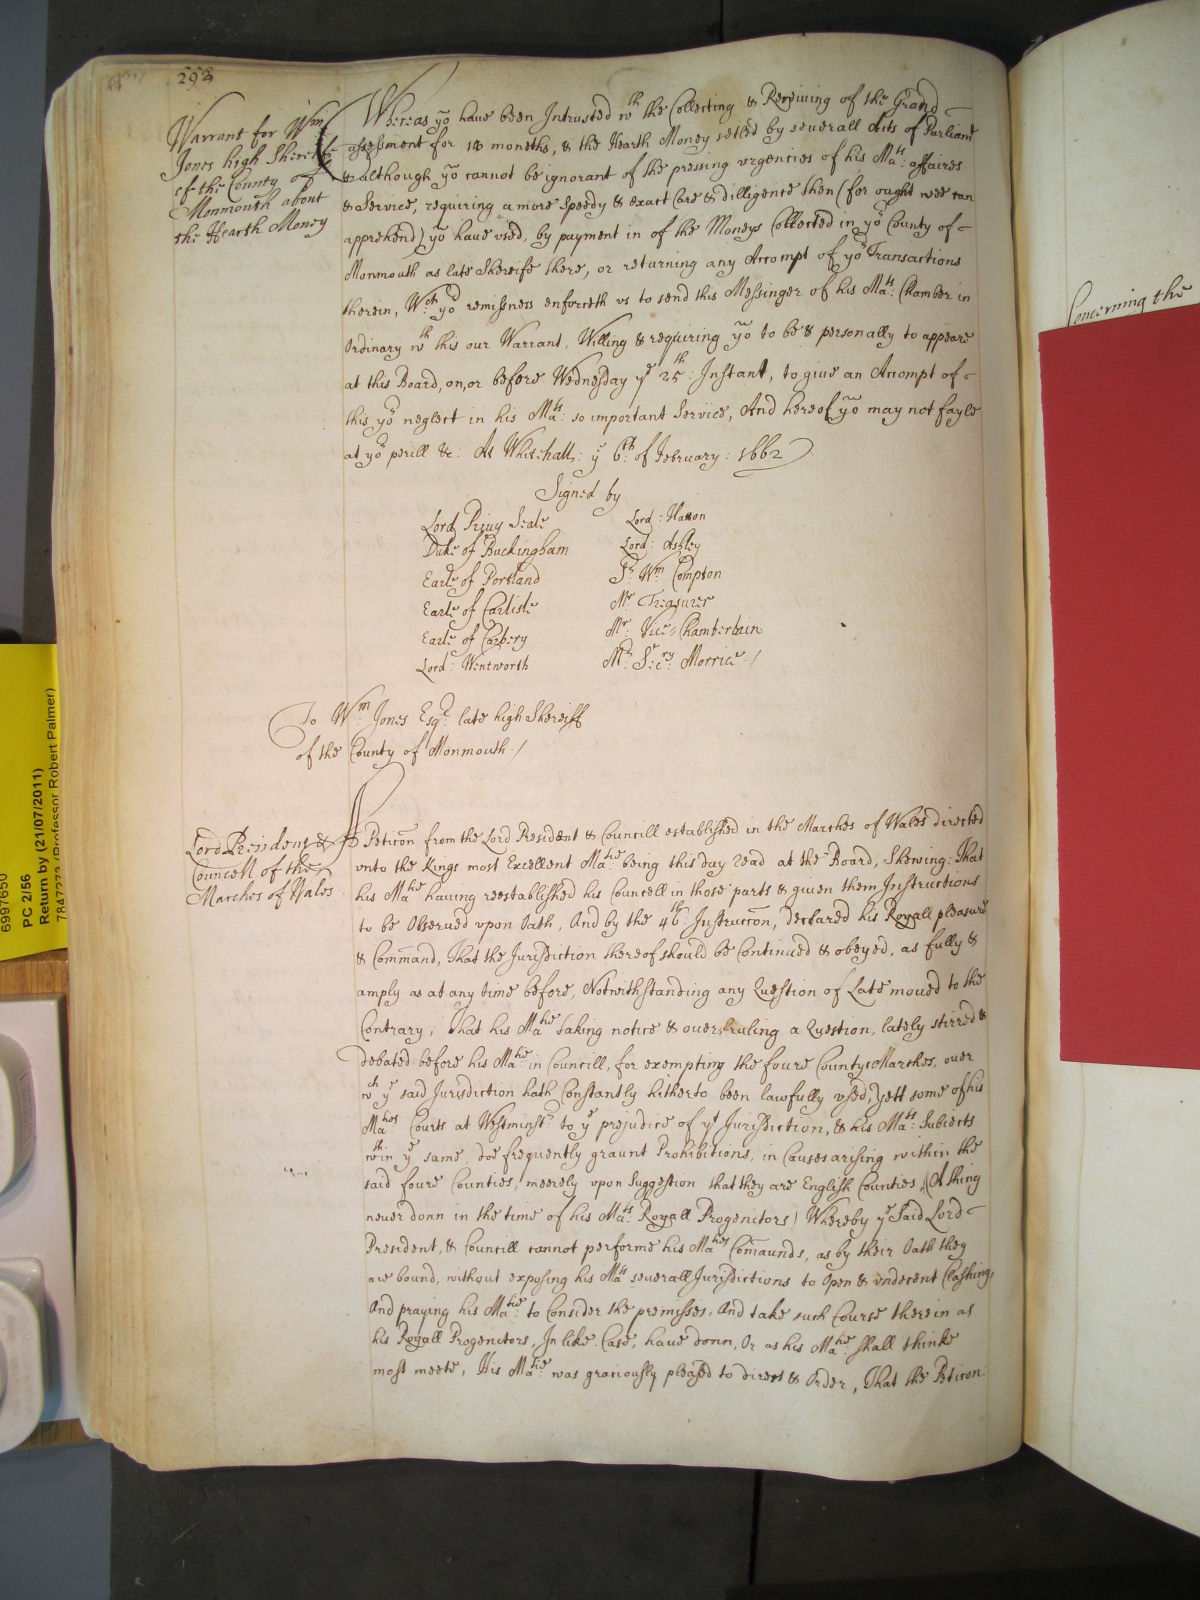 292
Warrant for Wm
Jones high Shereife
of the County of
Monmouth about
the Hearth Money
Whereas yo have been Intrusted wth the Collecting & Receiving of the Grand
assessment for 18 moneths, & the Hearth Money setled by severall Acts of Parliamt
& although yo cannot be ignorant of the pressing urgencies of his Mats: affaires
& Service, requiring a more speedy & exact Care & dilligence then (for ought wee can
apprehend) yo have used, by payment in of the Moneys Collected in yor County of
Monmouth as late Shereife there, or returning any Accompt of yor Transactions
therein, Wch yor remissness enforceth us to send this Messinger of his Mats: Chamber in
Ordinary wth this our Warrant, Willing & requiring yo to be & personally to appeare
at this Board, on, or before Wednesday ye 25th: Instant, to give an Accompt of
this yor neglect in his Mats: so important Service, And hereof yo may not fayle
at yor perill &c: At Whitehall: ye 6th: of February: 1662
Signed by
Lord Privy Seale Lord: Hatton
Duke of Buckingham Lord: Ashley
Earle of Portland Sr Wm Compton
Earle of Carlisle Mr Treasurer
Earle of Carbery Mr: Vice-Chamberlain
Lord: Wentworth Mr: Secry: Morrice /
To Wm Jones Esqr: late high Shereiff
of the County of Monmouth /
Lord President &
Councell of the
Marches of Wales
A Peticon from the Lord President & Councill established in the Marches of Wales directed
unto the Kings most Excellent Matie being this day read at the Board, Shewing: That
his Matie having reestablished his Councell in those parts & given them Instructions
to be Observed upon Oath, And by the 46th: Instruccon, declared his Royall pleasure
& Command, That the Jurisdiction thereof should be Continued & obeyed, as fully &
amply as at any time before, Notwithstanding any Question of Late moved to the
Contrary, That his Matie taking notice & overruling a Question, lately stirred &
debated before his Matie: in Councill, for exempting the foure Countys Marches, over
wch ye said Jurisdiction hath Constantly hitherto been lawfully used, Yett some of his
Maties Courts at Westminstr to ye prejudice of yt Jurisdiction, & his Mats: Subiects
wthin ye same, doe frequently graunt Prohibitions, in Causes arising within the
said foure Counties, meerely upon Suggestion that they are English Counties (A thing
never donn in the time of his Mats: Royall Progenitors) Whereby ye Said Lord
President, & Councill cannot performe his Maties Comaunds, as by their Oath they
are bound, without exposing his Mats severall Jurisdictions to Open & undecent Clashing,
And praying his Matie: to Consider the premisses, And take such Course therein as
his Royall Progenitors, In like Case, have donn, Or as his Matie: shall thinke
most meete, His Matie: was graciously pleased to direct & Order, That the Peticon
Concerning the
6997650
PC 2/56
Return by (21/07/2011)
7847273 (Professor Robert Palmer)